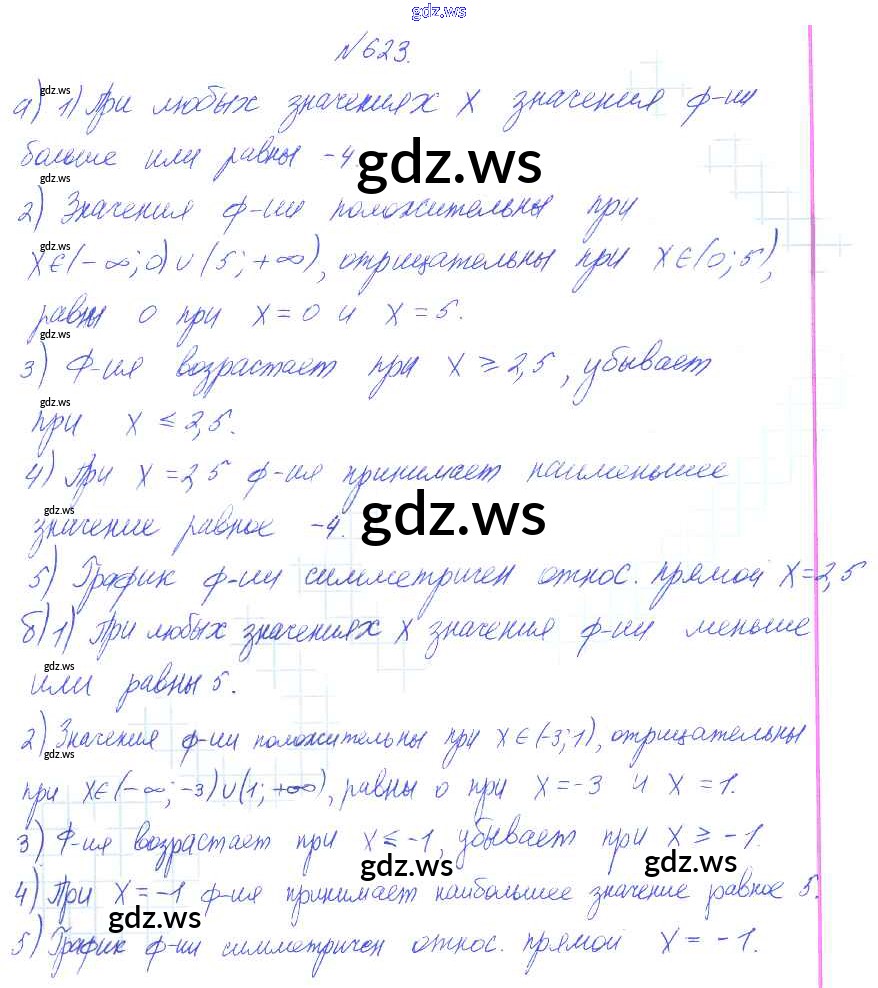 gdz.ws
№ 623.
а) 1) При любых значениях х значения ф-ии
gdz.ws
больше или равны -4.
gdz.ws
gdz.ws
2) Значения ф-ии положительны при
gdz.ws
х∈(-∞;0)∪(5;+∞), отрицательны при х∈(0;5),
равны 0 при х=0 и х=5.
gdz.ws
3) Ф-ия возрастает при х ≥ 2,5, убывает
gdz.ws
при х ≤ 2,5.
4) При х=2,5 ф-ия принимает наименьшее
gdz.ws
значение равное -4.
gdz.ws
5) График ф-ии симметричен относ. прямой х=2,5
б) 1) При любых значениях х значения ф-ии меньше
gdz.ws
или равны 5.
2) Значения ф-ии положительны при х∈(-3;1), отрицательны
gdz.ws
при х∈(-∞;-3)∪(1;+∞), равны 0 при х=-3 и х=1.
3) Ф-ия возрастает при х≤-1, убывает при х ≥ -1.
gdz.ws
gdz.ws
4) При х=-1 ф-ия принимает наибольшее значение равное 5.
gdz.ws
5) График ф-ии симметричен относ. прямой х = -1.